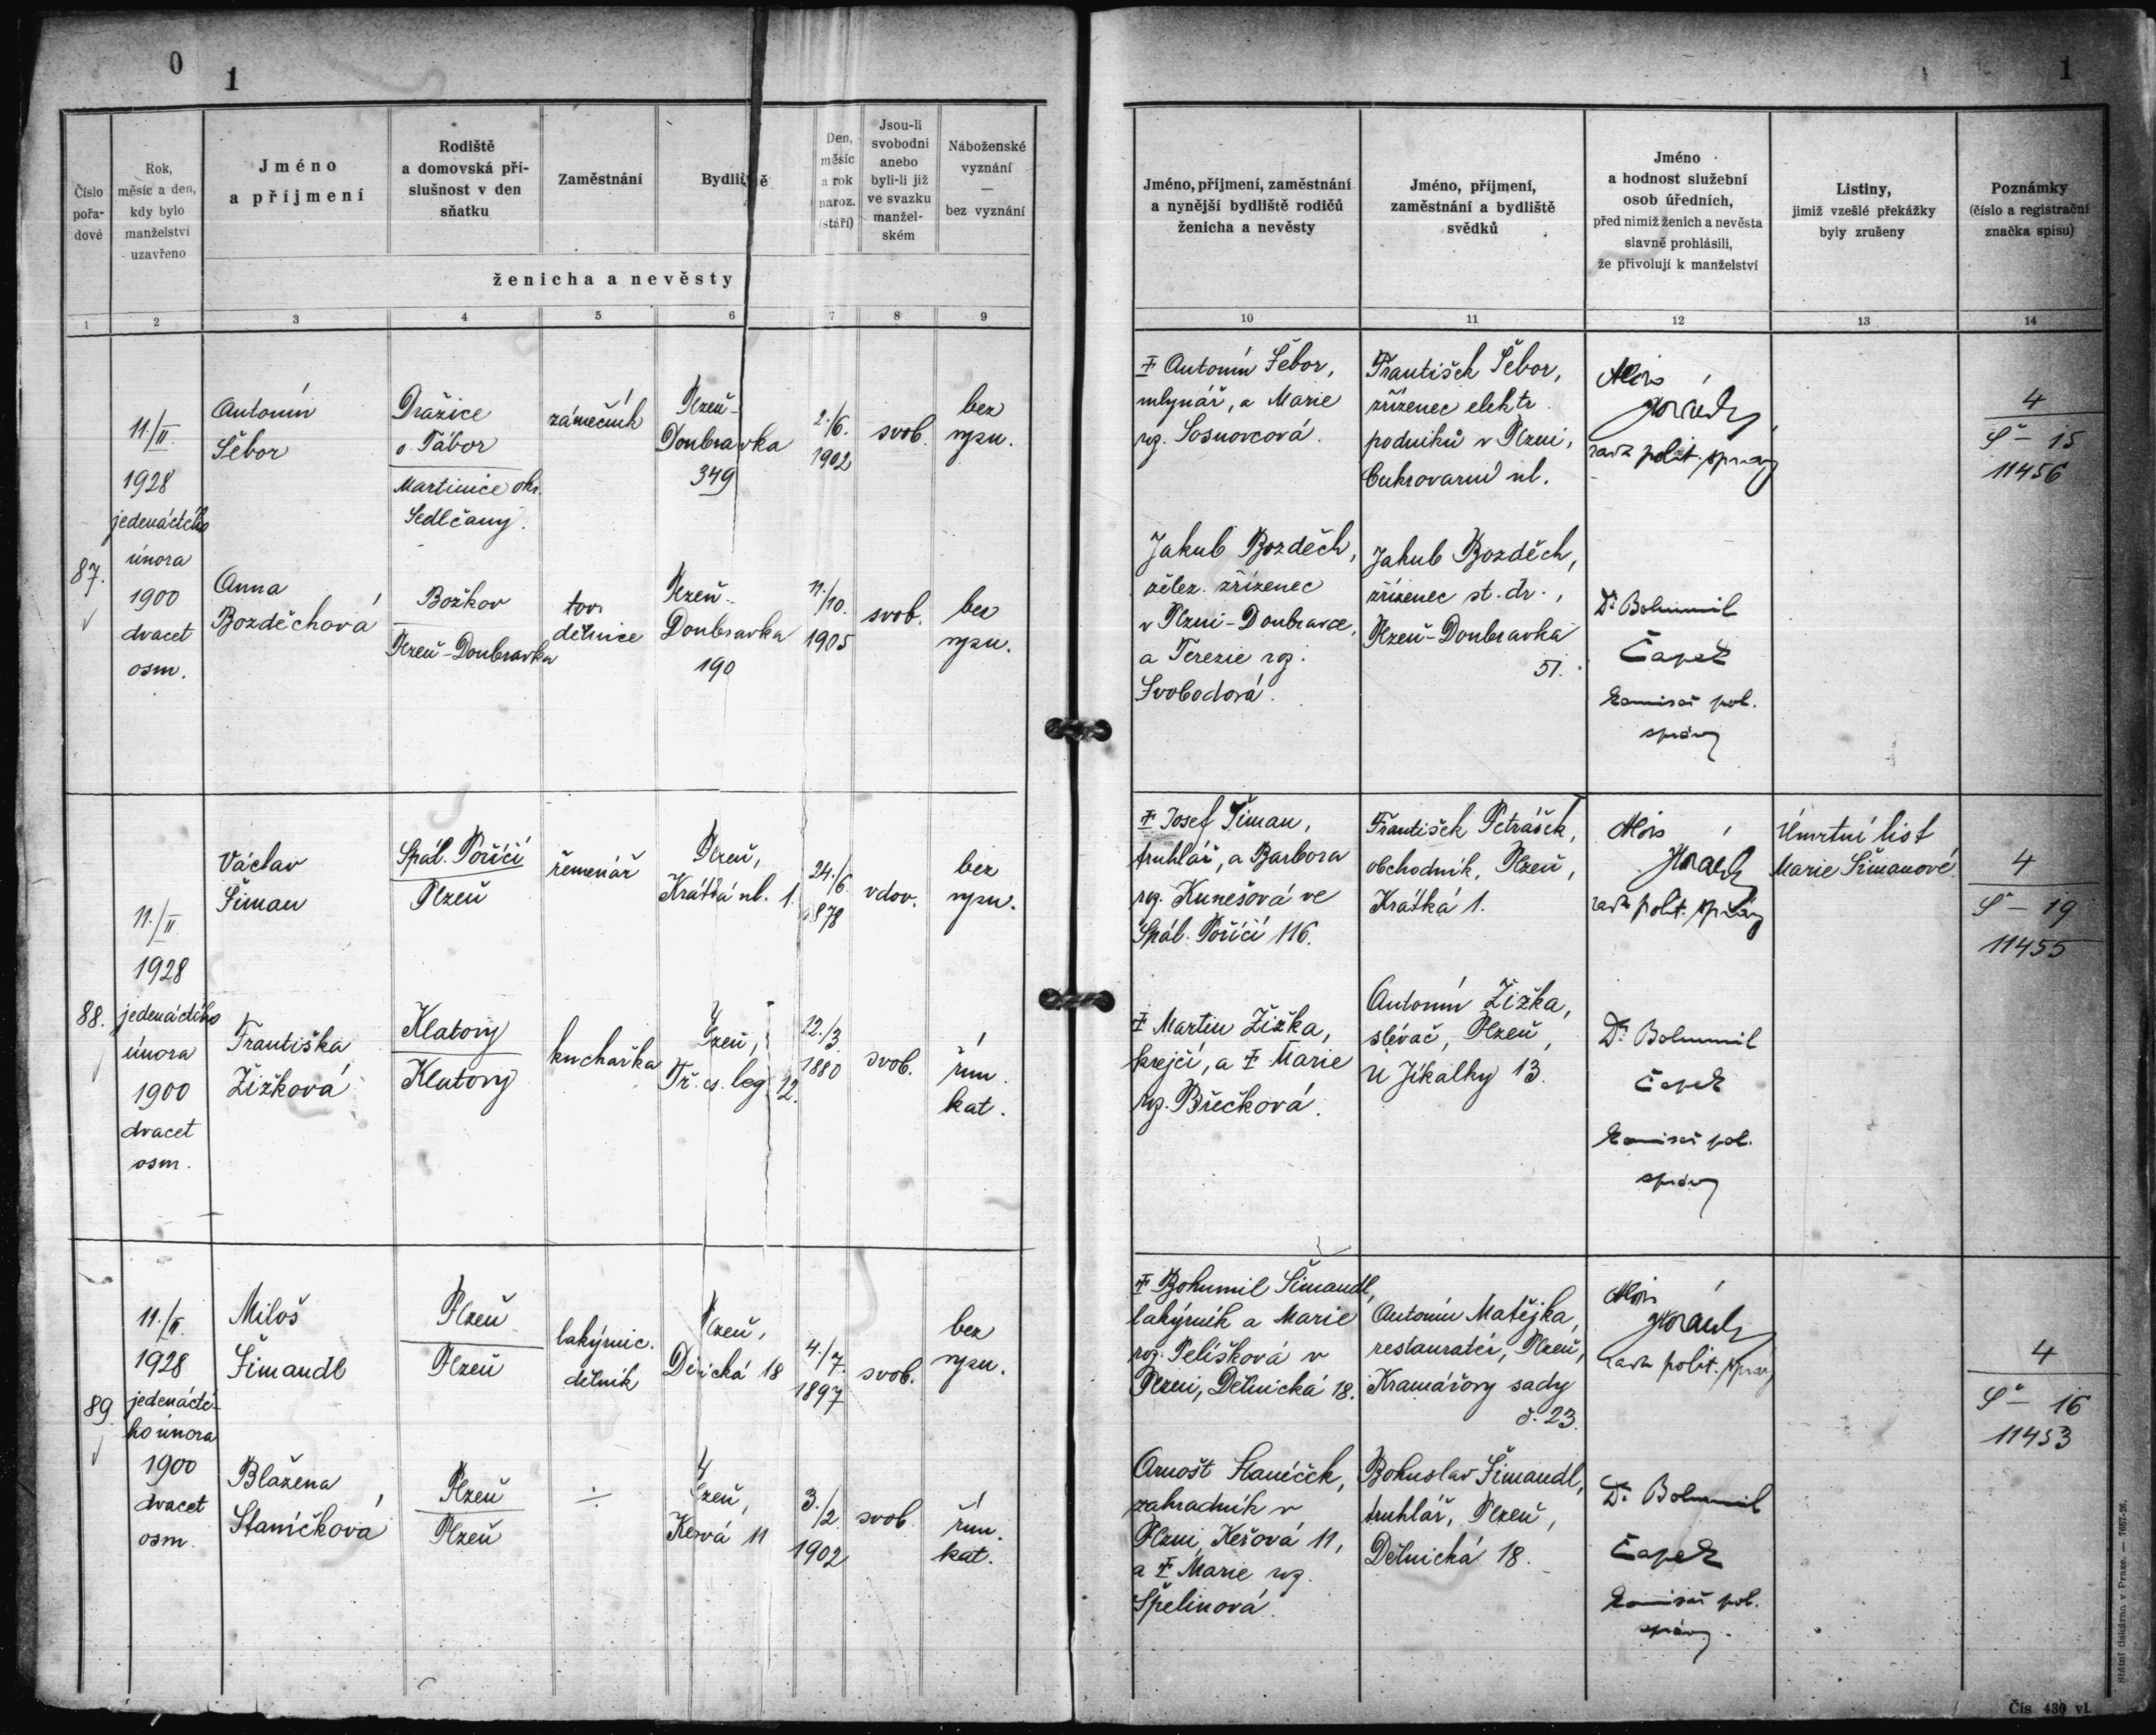 0
1
1
Číslo
pořa-
dové
Rok,
měsíc a den,
kdy bylo
manželství
uzavřeno
Jméno
a příjmení
Rodiště
a domovská pří-
slušnost v den
sňatku
Zaměstnání
Bydliště
Den,
měsíc
a rok
naroz.
(stáří)
Jsou-li
svobodni
anebo
byli-li již
ve svazku
manžel-
ském
Náboženské
vyznání
—
bez vyznání
ženicha a nevěsty
Jméno, příjmení, zaměstnání
a nynější bydliště rodičů
ženicha a nevěsty
Jméno, příjmení,
zaměstnání a bydliště
svědků
Jméno
a hodnost služební
osob úředních,
před nimiž ženich a nevěsta
slavně prohlásili,
že přivolují k manželství
Listiny,
jimiž vzešlé překážky
byly zrušeny
Poznámky
(číslo a registrační
značka spisu)
1 2 3 4 5 6 7 8 9 10 11 12 13 14
87.
11./II.
1928
jedenáctého
února
1900
dvacet
osm.
Antonín
Šebor
Dražice
o. Tábor
Martinice okr.
Sedlčany.
zámečník
Plzeň-
Doubravka
349
2./6.
1902
svob.
bez
vyzn.
Anna
Bozděchová
Božkov
Plzeň-Doubravka
tov.
dělnice
Plzeň-
Doubravka
190
11./10.
1905
svob.
bez
vyzn.
‡ Antonín Šebor,
mlynář, a Marie
roz. Sosnovcová.
František Šebor,
zřízenec elektr.
podniků v Plzni,
Cukrovarní ul.
Alois
Horách
rada polit. správy
4
Š – 15
11456
Jakub Bozděch,
želez. zřízenec
v Plzni-Doubravce,
a Terezie roz.
Svobodová.
Jakub Bozděch,
zřízenec st. dr.,
Plzeň-Doubravka
51.
Dr. Bohumil
Čapek
komisař pol.
správy
88.
11./II.
1928
jedenáctého
února
1900
dvacet
osm.
Václav
Šiman
Spál. Poříčí
Plzeň
řemenář
Plzeň,
Krátká ul. 1.
24./6.
1878
vdov.
bez
vyzn.
Františka
Žižková
Klatovy
Klatovy
kuchařka
Plzeň,
Tř. čs. leg. 12.
12./3.
1880
svob.
řím.
kat.
‡ Josef Šiman,
truhlář, a Barbora
roz. Kunešová ve
Spál. Poříčí 116.
František Petrášek,
obchodník, Plzeň,
Krátká 1.
Alois
Horách
rada polit. správy
Úmrtní list
Marie Šimanové
4
Š – 19
11455
‡ Martin Žižka,
krejčí, a ‡ Marie
roz. Břečková.
Antonín Žižka,
slévač, Plzeň,
U Jíkalky 13.
Dr. Bohumil
Čapek
komisař pol.
správy
89.
11./II.
1928
jedenácté-
ho února
1900
dvacet
osm.
Miloš
Šimandl
Plzeň
Plzeň
lakýrnic.
dělník
Plzeň,
Dělnická 18
4./7.
1897
svob.
bez
vyzn.
Blažena
Staníčková
Plzeň
Plzeň
÷
Plzeň,
Keřová 11
3./2.
1902
svob.
řím.
kat.
‡ Bohumil Šimandl,
lakýrník a Marie
roz. Pelíšková v
Plzni, Dělnická 18.
Antonín Matějka,
restauratér, Plzeň,
Kramářovy sady
č. 23.
Alois
Horách
rada polit. správy
4
Š – 16
11453
Arnošt Staníček,
zahradník v
Plzni, Keřová 11,
a ‡ Marie roz.
Špelinová.
Bohuslav Šimandl,
truhlář, Plzeň,
Dělnická 18.
Dr. Bohumil
Čapek
komisař pol.
správy.
Státní tiskárna v Praze. — 7667-26.
Čís. 430 vl.